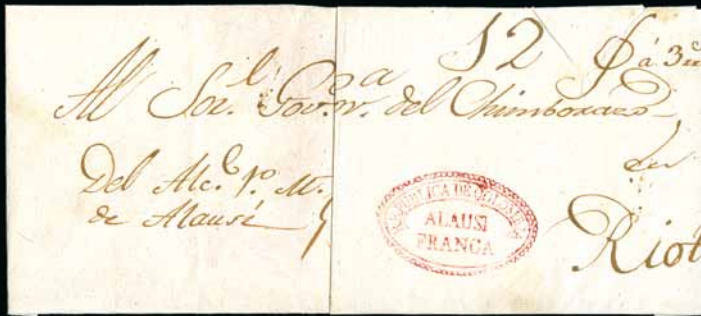 12 á 3
Al Sor. Gov.r. del Chimborazo
en
Del Alc.e 1.o M.
de Alausí
REPUBLICA DE COLOMBIA
ALAUSI
FRANCA
Riob